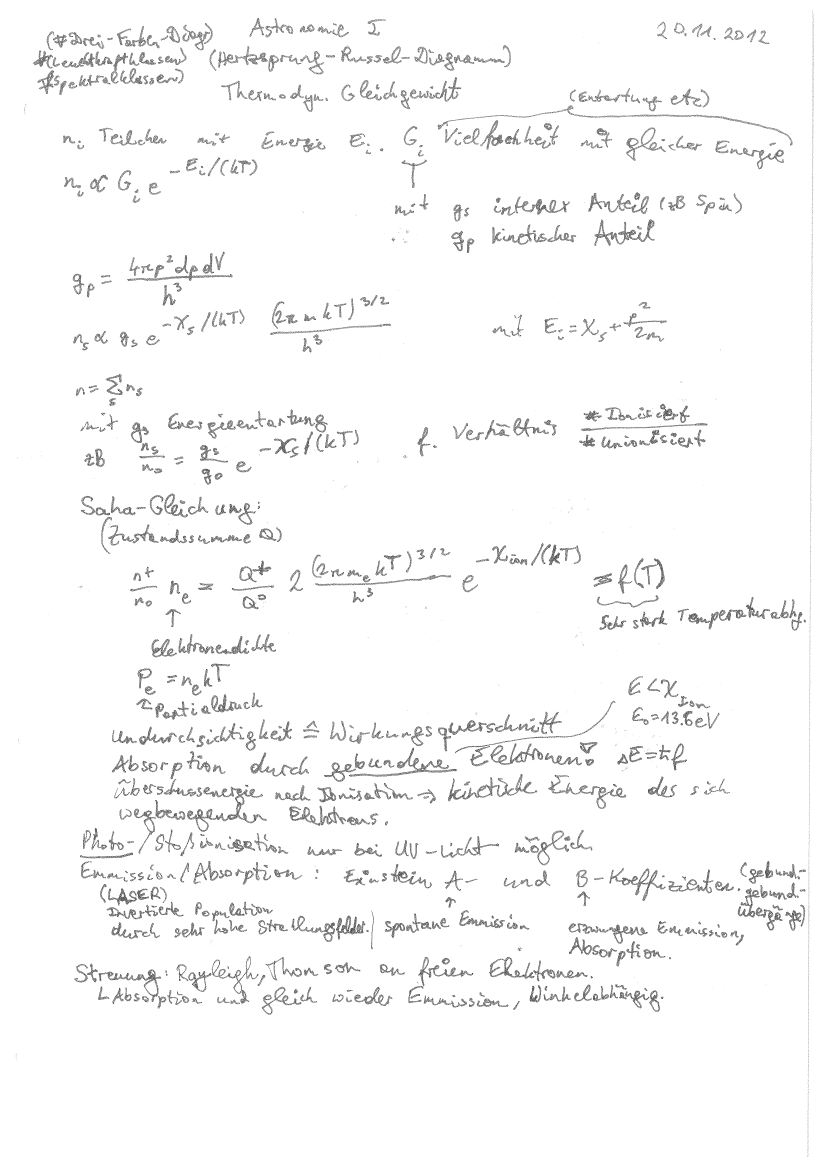 (#Drei-Farben-Diagr) Astronomie I 20.11.2012
#(Leuchtkraftklassen) (Hertzsprung-Russel-Diagramm)
#Spektralklassen)
Thermodyn. Gleichgewicht (Entartung etc)
n_i Teilchen mit Energie E_i. G_i Vielfachheit mit gleicher Energie
n_i ∝ G_i e^{-E_i/(kT)}
mit g_s interner Anteil (zB Spin)
g_p kinetischer Anteil
g_p = 4πp²dpdV / h³
n_s ∝ g_s e^{-χ_s/(kT)} (2πmkT)^{3/2} / h³ mit E_i = χ_s + p²/2m
n = Σ_s n_s
mit g_s Energieentartung
zB n_s/n_0 = g_s/g_0 e^{-χ_s/(kT)} f. Verhältnis # Ionisiert / # Unionisiert
Saha-Gleichung:
(Zustandssumme Q)
n^+/n_0 n_e = Q^+/Q^0 2 (2πm_e kT)^{3/2} / h³ e^{-χ_ion/(kT)} = f(T)
Sehr stark Temperaturabhg.
↑
Elektronendichte
P_e = n_e kT
↑ Partialdruck
E < χ_Ion
E_0 = 13.6 eV
Undurchsichtigkeit ≙ Wirkungsquerschnitt
Absorption durch gebundene Elektronen! ΔE = ħf
Überschussenergie nach Ionisation ⇒ kinetische Energie des sich
wegbewegenden Elektrons.
Photo-/Stoßionisation nur bei UV-Licht möglich
Emmission/Absorption: Einstein A- und B-Koeffizienten. (gebund-
gebund-
übergänge)
(LASER)
Invertierte Population
durch sehr hohe Strahlungsfelder.) spontane Emmission
erzwungene Emmission,
Absorption.
Streuung: Rayleigh, Thomson an freien Elektronen.
↳ Absorption und gleich wieder Emmission, Winkelabhängig.